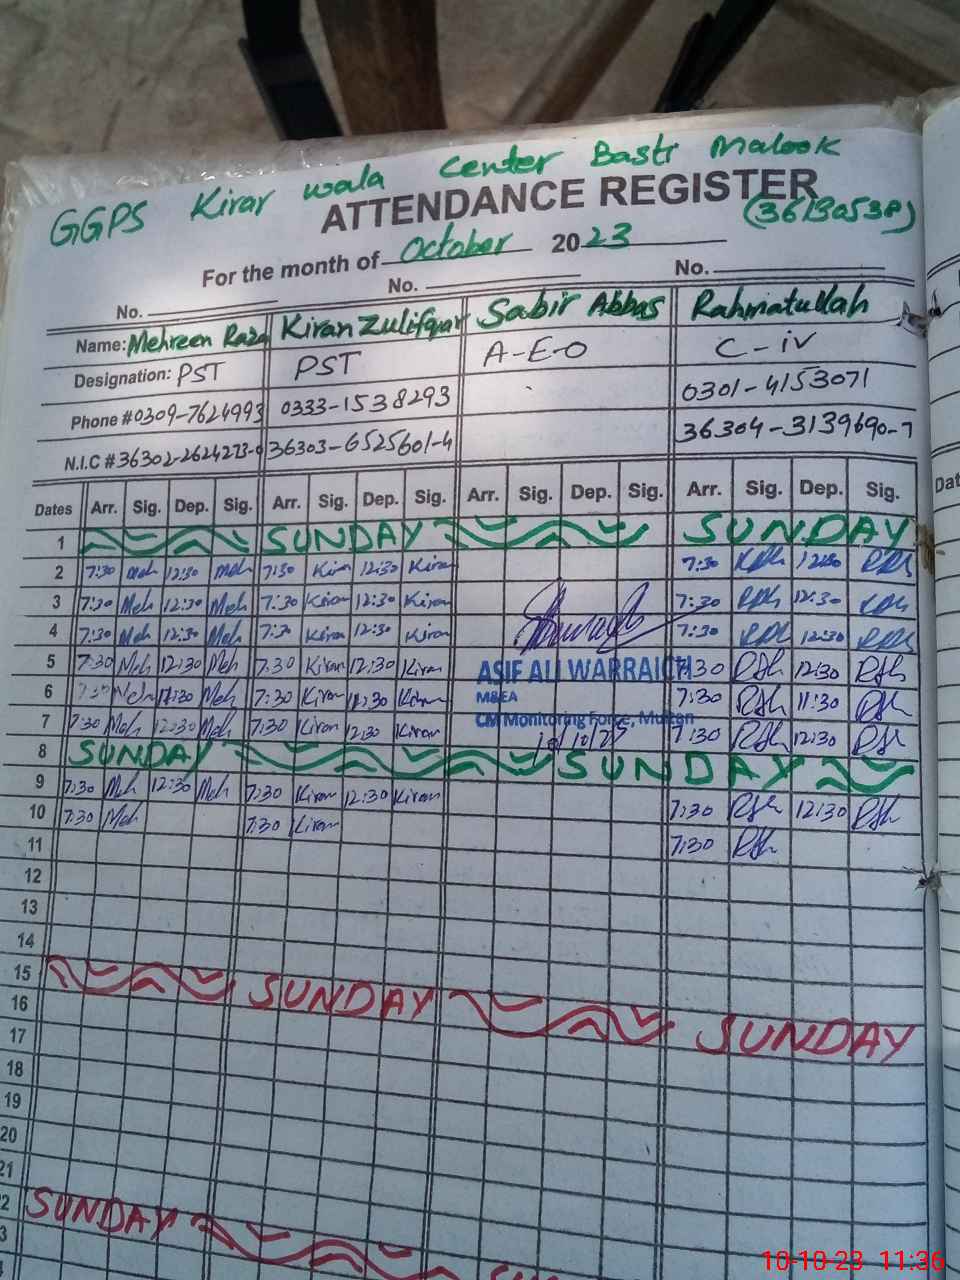 GGPS Kirar wala Center Basti Malook
ATTENDANCE REGISTER
(36130538)
For the month of October 2023
No. No. No.
Name: Mehreen Raza Kiran Zulifqar Sabir Abbas Rahmatullah
Designation: PST PST A-E-O C-iv
Phone # 0309-7624993 0333-1538293 0301-4153071
N.I.C # 36302-2624273-0 36303-6525601-4 36304-3139690-7
Dates Arr. Sig. Dep. Sig. Arr. Sig. Dep. Sig. Arr. Sig. Dep. Sig. Arr. Sig. Dep. Sig.
1 SUNDAY SUNDAY
2 7:30 Meh 12:30 Meh 7:30 Kiran 12:30 Kiran 7:30 12:30
3 7:30 Meh 12:30 Meh 7:30 Kiran 12:30 Kiran 7:30 12:30
4 7:30 Meh 12:30 Meh 7:30 Kiran 12:30 Kiran 7:30 12:30
5 7:30 Meh 12:30 Meh 7:30 Kiran 12:30 Kiran ASIF ALI WARRAICH 7:30 12:30
6 7:30 Meh 11:30 Meh 7:30 Kiran 11:30 Kiran M&EA 7:30 11:30
7 7:30 Meh 12:30 Meh 7:30 Kiran 12:30 Kiran CM Monitoring Force, Multan 7:30 12:30
10/10/23
8 SUNDAY SUNDAY
9 7:30 Meh 12:30 Meh 7:30 Kiran 12:30 Kiran 7:30 12:30
10 7:30 Meh 7:30 Kiran 7:30
11
12
13
14
15 SUNDAY SUNDAY
16
17
18
19
20
21
22 SUNDAY
Dat
10-10-23 11:36